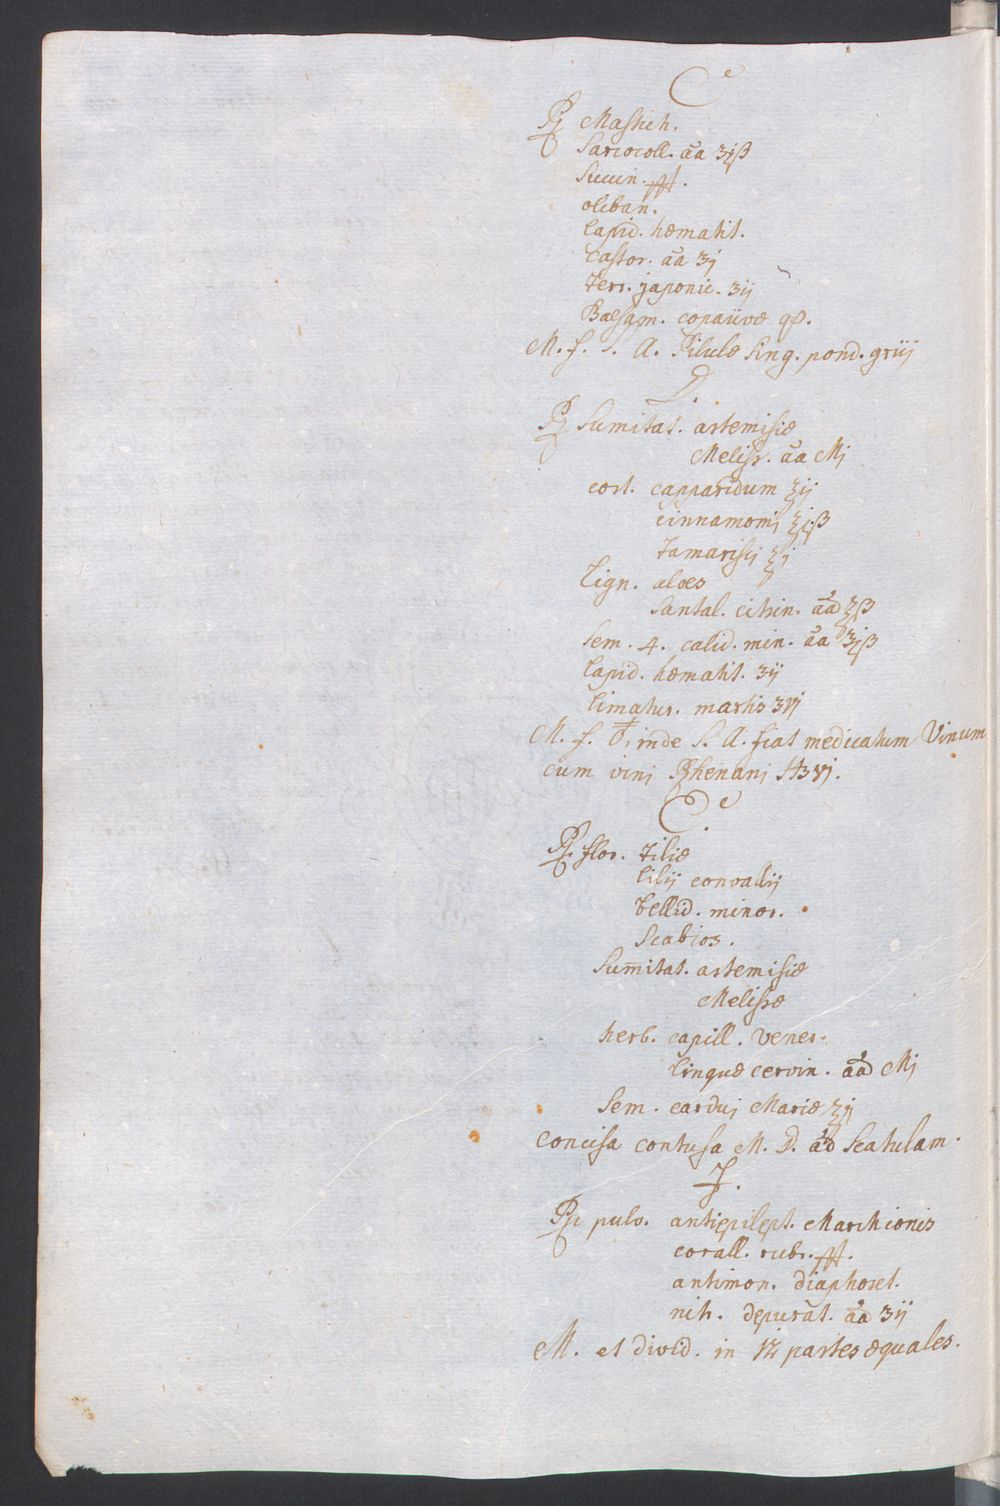 C
℞ Mastich.
Sarcocoll. āa ʒiß
Succin. ppt.
oliban.
Lapid. hæmatit.
Castor. āa ʒj
Terr. japonic. ʒij
Balsam. copaiivæ qs.
M. f. S. A. Pilulæ sing. pond. griij
D.
℞ Sumitat. artemisiæ
Meliss. āa Mj
cort. capparidum ℥ij
Cinnamomj ℥jß
Tamariscj ℥j
Lign. aloes
Santal. citrin. āa ℥ß
Sem. 4. calid. min. āa ʒjß
Lapid. hæmatit. ʒij
Limatur. martis ʒvj
M. f. inde S. A. fiat medicatum Vinum
cum vinj Rhenanj ℔vj.
E.
℞ flor. Tiliæ
Lilij convallij
Bellid. minor.
Scabios.
Sum̄itat. artemisiæ
Melissæ
herb. capill. Vener.
Linguæ cervin. āa Mj
Sem. carduj Mariæ ℥ij
Concisa contusa M. D. ad Scatulam.
F.
℞ pulv. antiepilept. Marchionis
corall. rubr. ppt.
antimon. diaphoret.
nitr. depurat. āa ʒij
M. et divid. in 12 partes æquales.